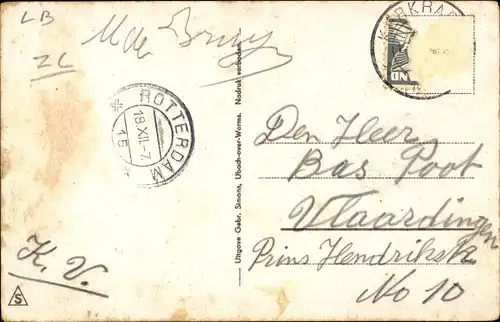 LB
ZL
M de Bruyn
KERKRA
ND
ROTTERDAM
18.XII.-7
15
Uitgave Gebr. Simons, Ubach-over-Worms. Nadruk verboden.
Den Heer
Bas Poot
Vlaardingen
Prins Hendrikstr
No 10
K. V.
S